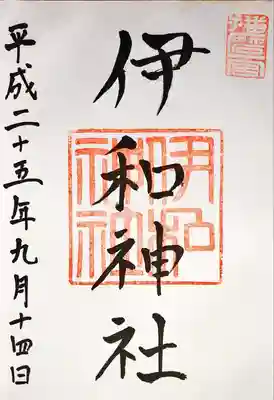 播磨一宮
伊和神社
伊和神社
平成二十五年九月十四日